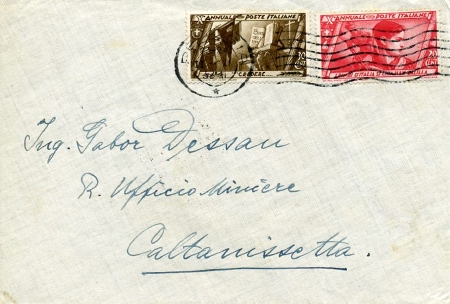 X ANNUALE POSTE ITALIANE
CREDERE
X ANNUALE POSTE ITALIANE
20
CENT
Ing. Gabor Dessau
R. Ufficio Miniere
Caltanissetta.